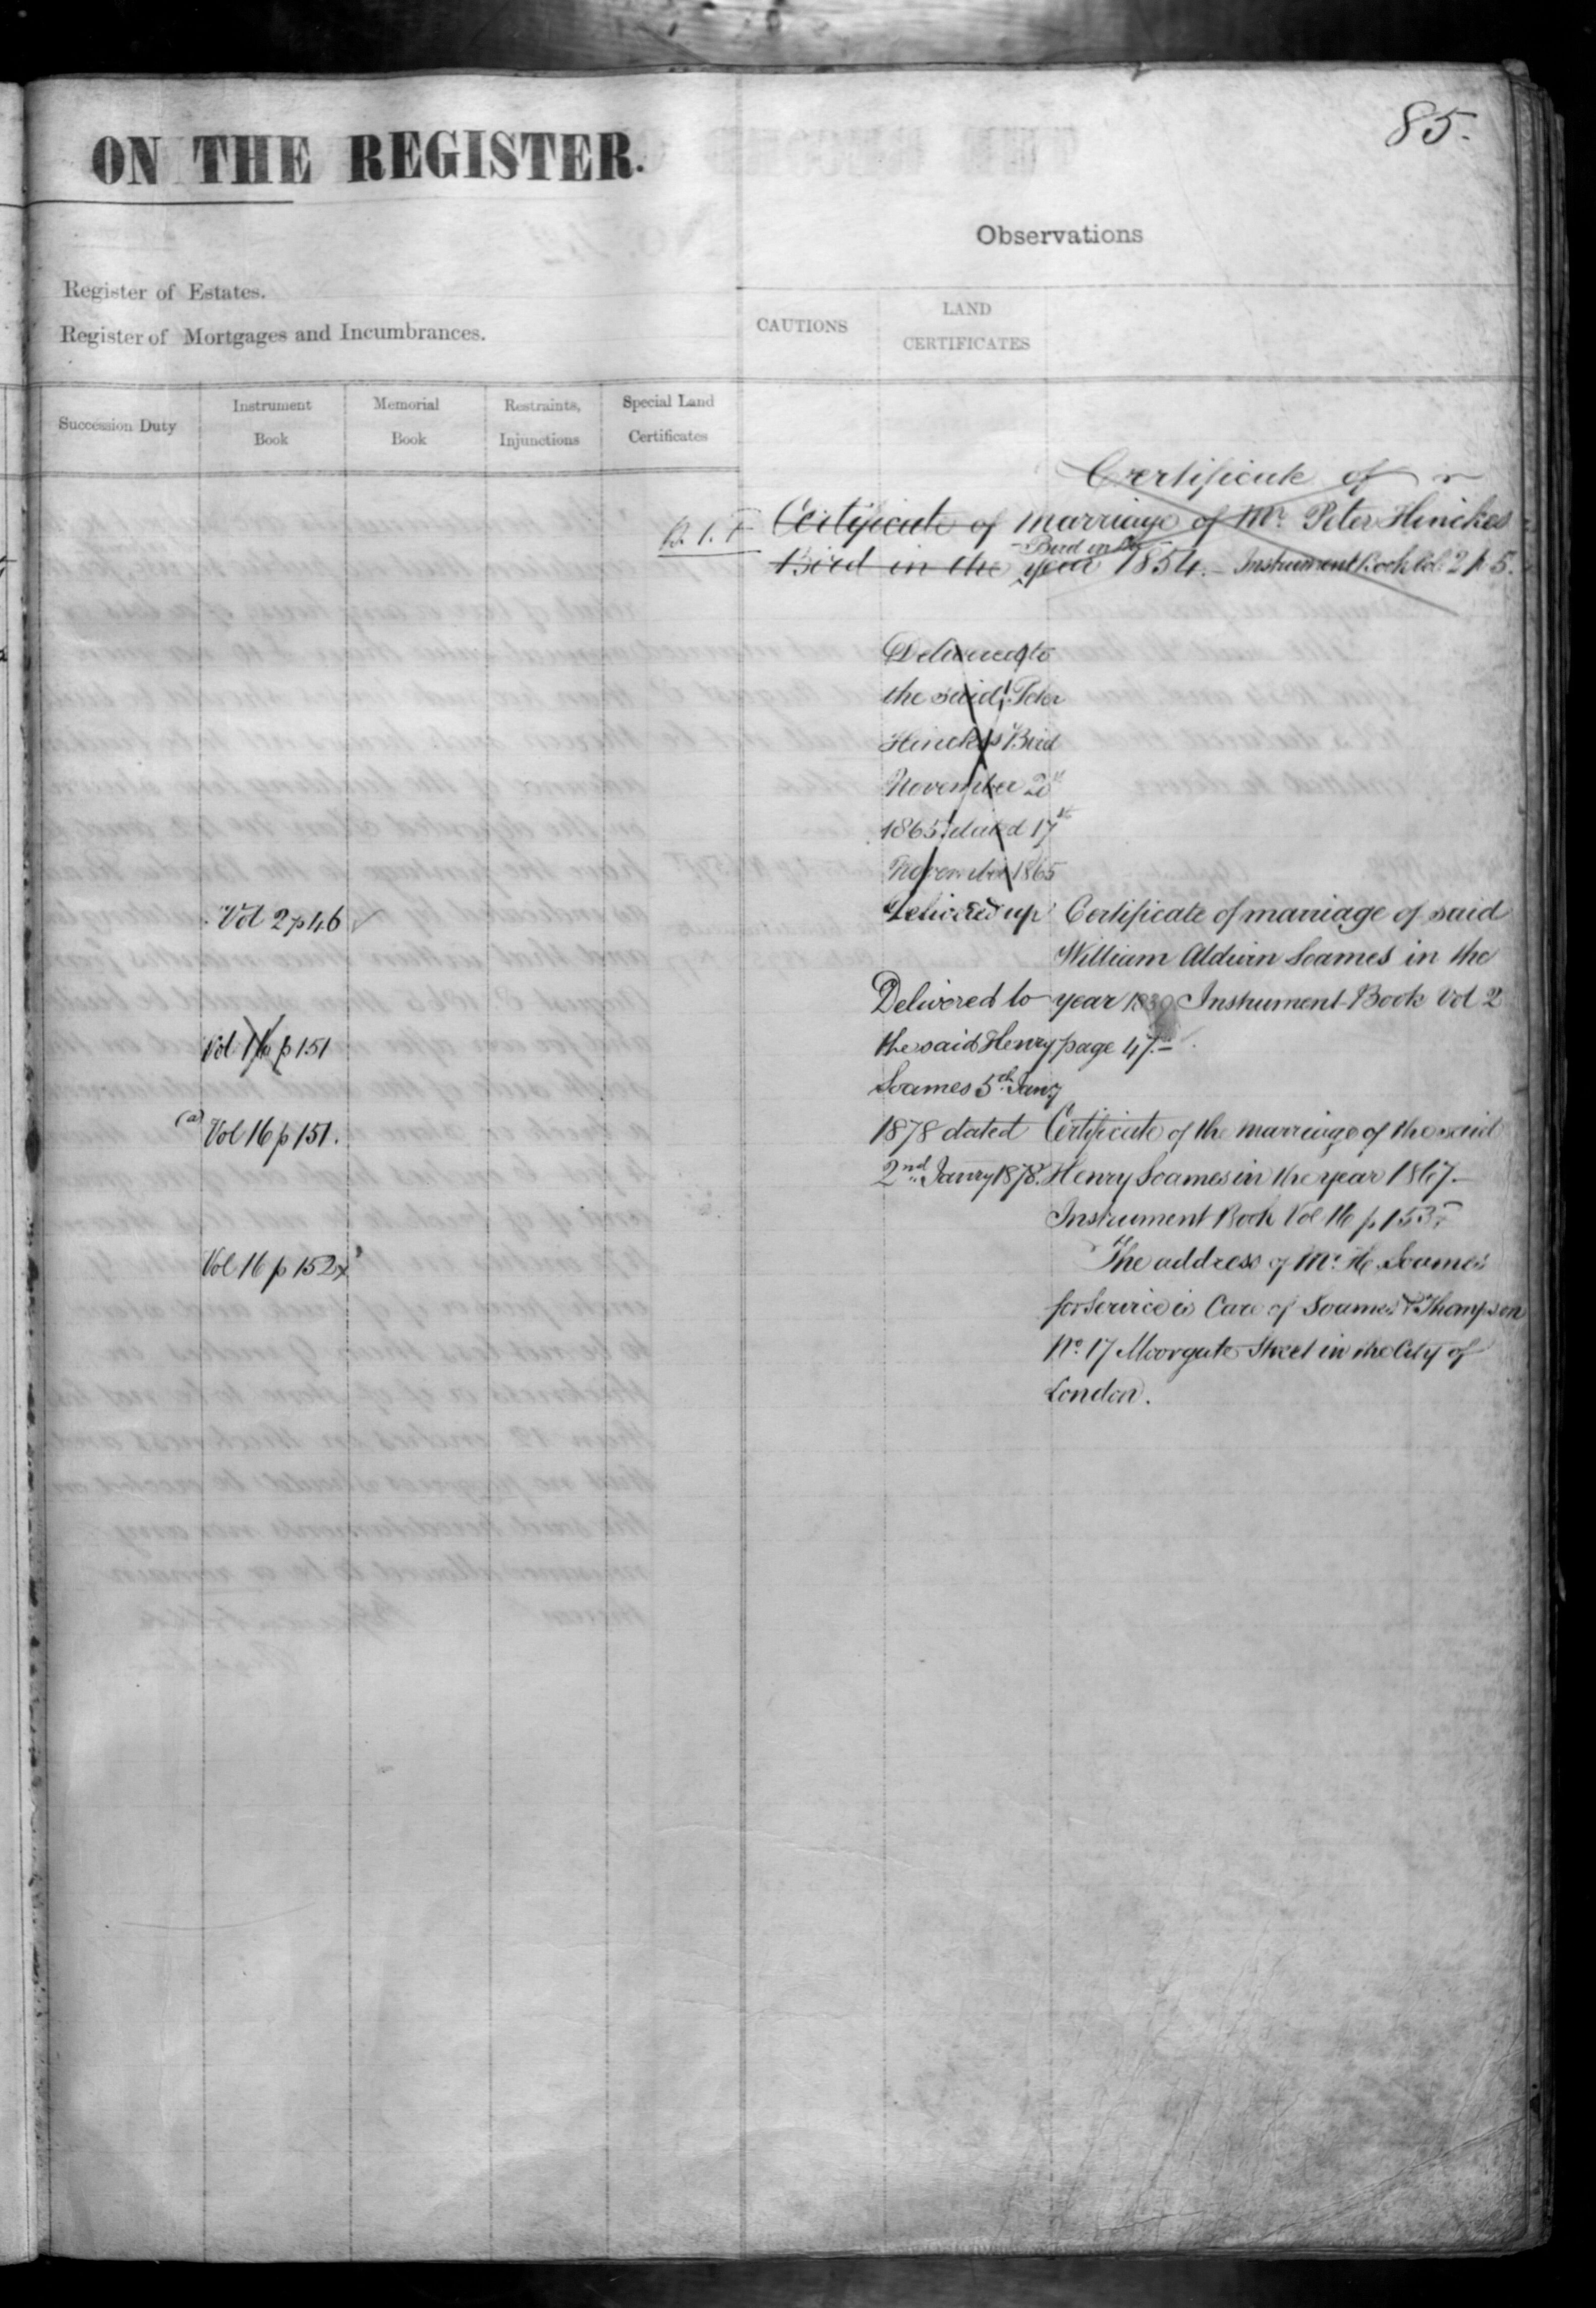 85.
ON THE REGISTER.
Observations
Register of Estates.
Register of Mortgages and Incumbrances.
CAUTIONS
LAND
CERTIFICATES
Succession Duty
Instrument
Book
Memorial
Book
Restraints,
Injunctions
Special Land
Certificates
Certificate of
Certificate of marriage of Mr. Peter Hinckes
Bird in the
Bird in the year 1854. Instrument Book Vol 2 p 5.
Delivered to
the said Peter
Hinckes Bird
November 2
1865 dated 17th
November 1865
Delivered up
Vol 2 p 46
Certificate of marriage of said
William Aldwin Soames in the
year 1839 Instrument Book Vol 2
page 47.
Delivered to
the said Henry
Soames 5th Jany
1878 dated
2nd Janry 1878.
Vol 16 p 151
(a) Vol 16 p 151.
Certificate of the marriage of the said
Henry Soames in the year 1867.
Instrument Book Vol 16 p 153
Vol 16 p 152
The address of Mr. H. Soames
for Service is Care of Soames & Thompson
No. 17 Moorgate Street in the City of
London.